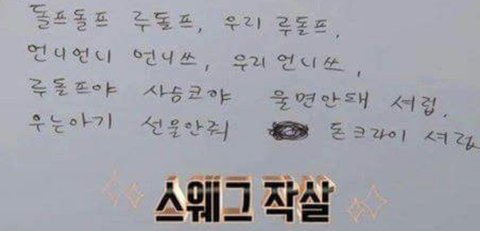 돌프돌프 루돌프, 우리 루돌프,
언니언니 언니쓰, 우리언니쓰,
루돌프야 사슴코야 울면안돼 셔럽,
우는아기 선물안줘 돈크라이 셔럽
스웨그 작살